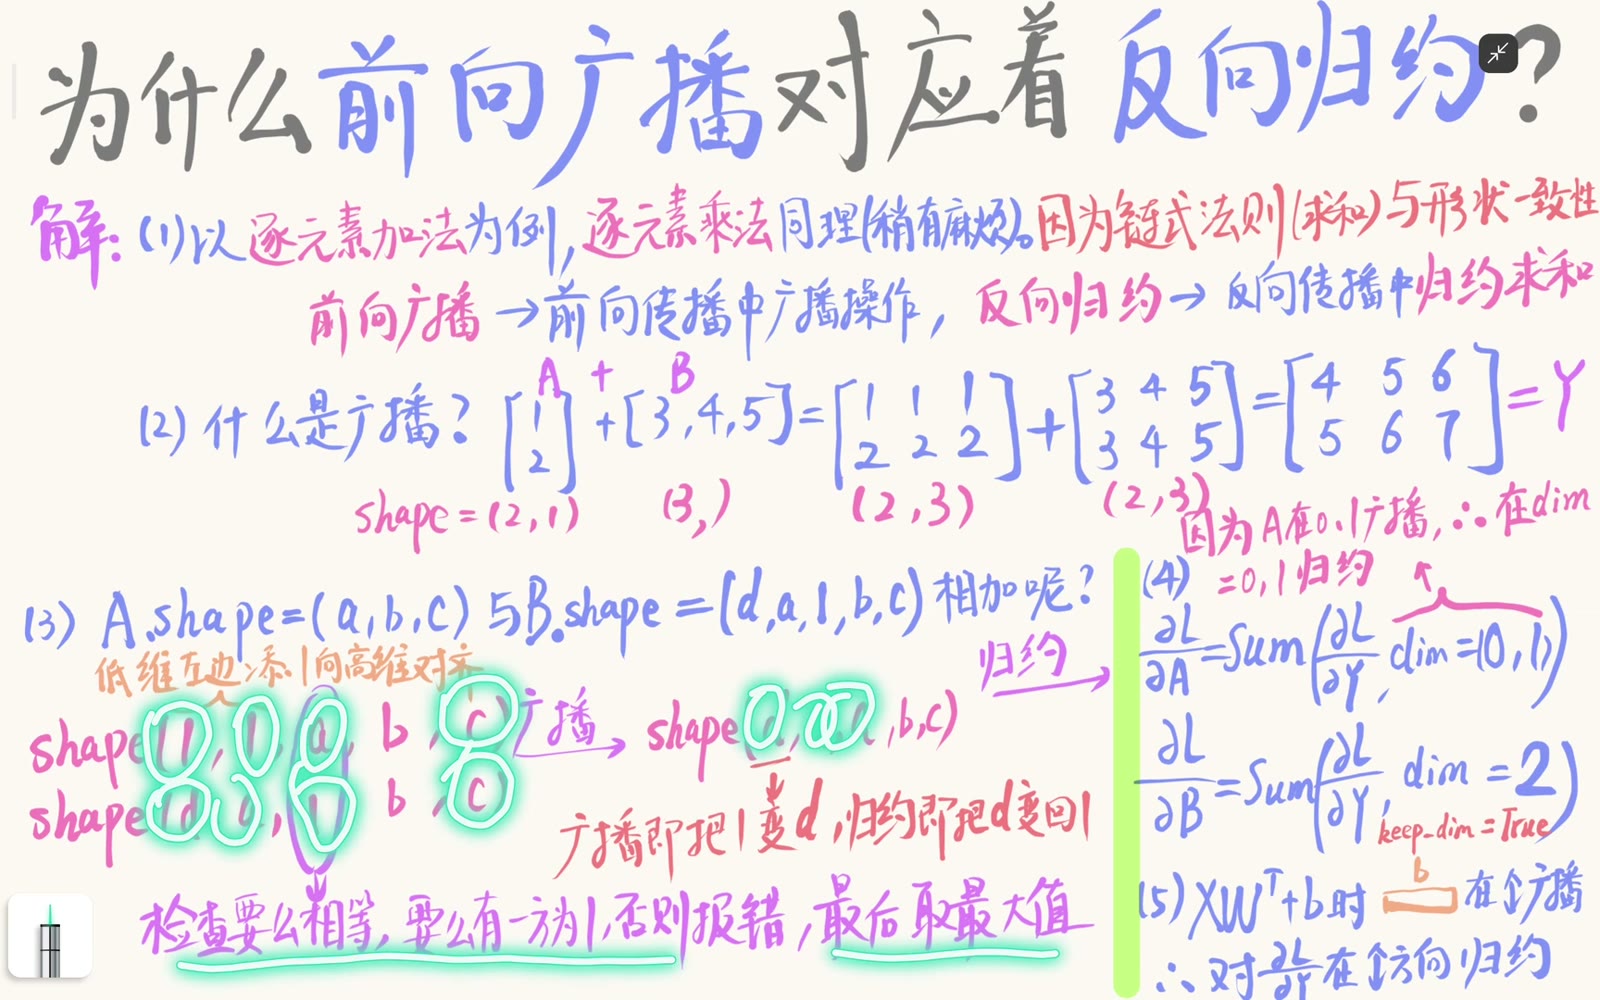 为什么前向广播对应着反向归约?
解: (1)以逐元素加法为例,逐元素乘法同理(稍有麻烦)。因为链式法则(求和)与形状一致性
前向广播→前向传播中广播操作, 反向归约→反向传播中归约求和
A + B
(2) 什么是广播? [1 2] + [3,4,5] = [1 1 1 2 2 2] + [3 4 5 3 4 5] = [4 5 6 5 6 7] = Y
shape=(2,1) (3,) (2,3) (2,3)
(3) A.shape=(a,b,c) 与B.shape=(d,a,1,b,c) 相加呢?
低维左边添1向高维对齐
shape(1,1,a,b,c) 广播→ shape(d,a,a,b,c) 归约→
shape(d,a,1,b,c)
广播即把1变d,归约即把d变回1
检查要么相等,要么有一方为1,否则报错,最后取最大值
因为A在0、1广播,∴在dim
=0,1归约
(4)
∂L/∂A=Sum(∂L/∂Y, dim=(0,1))
∂L/∂B=Sum(∂L/∂Y, dim=2)
keep-dim=True
(5) XWᵀ+b时 b 在↕广播
∴对∂L/∂Y在↕方向归约